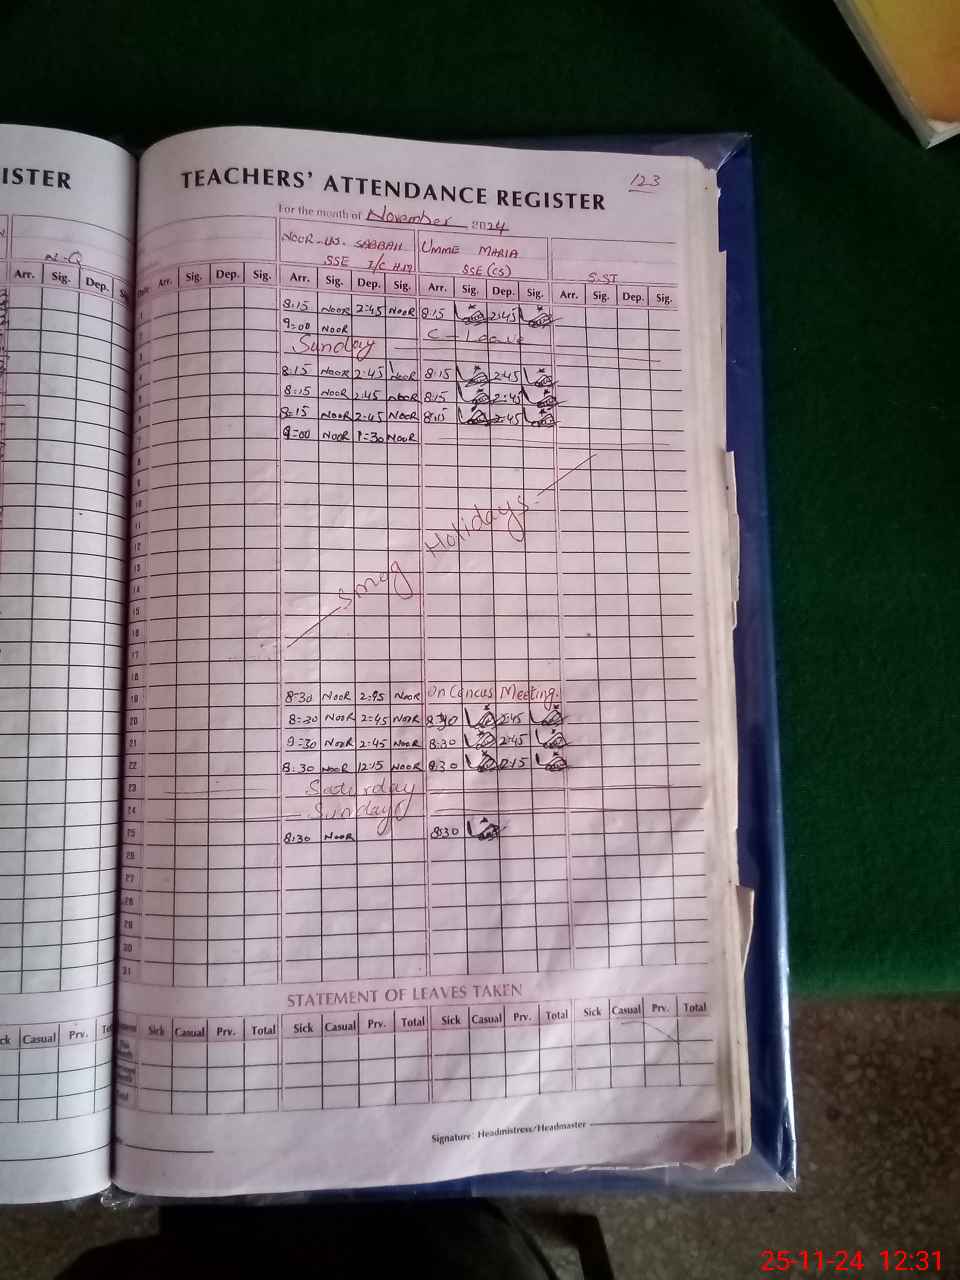 ISTER
TEACHERS' ATTENDANCE REGISTER
123
For the month of November 2024
NOOR-US-SABBAH UMME MARIA
SSE I/C H.M SSE (CS) S.ST
Arr. Sig. Dep. Arr. Sig. Dep. Sig. Arr. Sig. Dep. Sig. Arr. Sig. Dep. Sig. Arr. Sig. Dep. Sig.
8:15 NOOR 2:45 NOOR 8:15 2:45
9:00 NOOR C-Leave
Sunday
8:15 NOOR 2:45 NOOR 8:15 2:45
8:15 NOOR 2:45 NOOR 8:15 2:45
8:15 NOOR 2:45 NOOR 8:15 2:45
7 9=00 NOOR 1=30 NOOR
8
9
10
11
12
13
14
15
16
17
18
Smog Holidays.
19 8=30 NOOR 2:45 NOOR On Cencus Meeting.
20 8=30 NOOR 2:45 NOOR 8:30 2:45
21 9=30 NOOR 2:45 NOOR 8:30 2:45
22 8:30 NOOR 12:15 NOOR 8:30 2:15
23 Saturday
24 Sunday
25 8:30 NOOR 8:30
26
27
28
29
30
31
STATEMENT OF LEAVES TAKEN
Casual Prv. Sick Casual Prv. Total Sick Casual Prv. Total Sick Casual Prv. Total Sick Casual Prv. Total
Signature: Headmistress/Headmaster
25-11-24 12:31